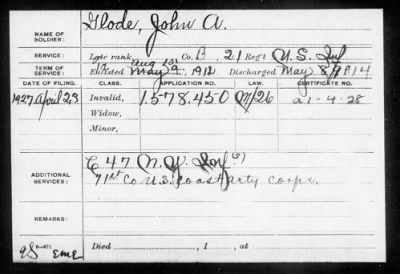 NAME OF SOLDIER: Glode, John A.
SERVICE: Late rank, Co. B, 21 Reg't U.S. Inf
TERM OF SERVICE: Enlisted Aug 15 May 9, 1912 Discharged May 8, 1914
DATE OF FILING. CLASS. APPLICATION NO. LAW. CERTIFICATE NO.
1927 April 23 Invalid, 1.578.450 M/26 21-4-28
Widow,
Minor,
ADDITIONAL SERVICES: E 47 N.Y. Inf (s)
71st Co U.S. Coast Arty Corps.
REMARKS:
Died , 1 , at